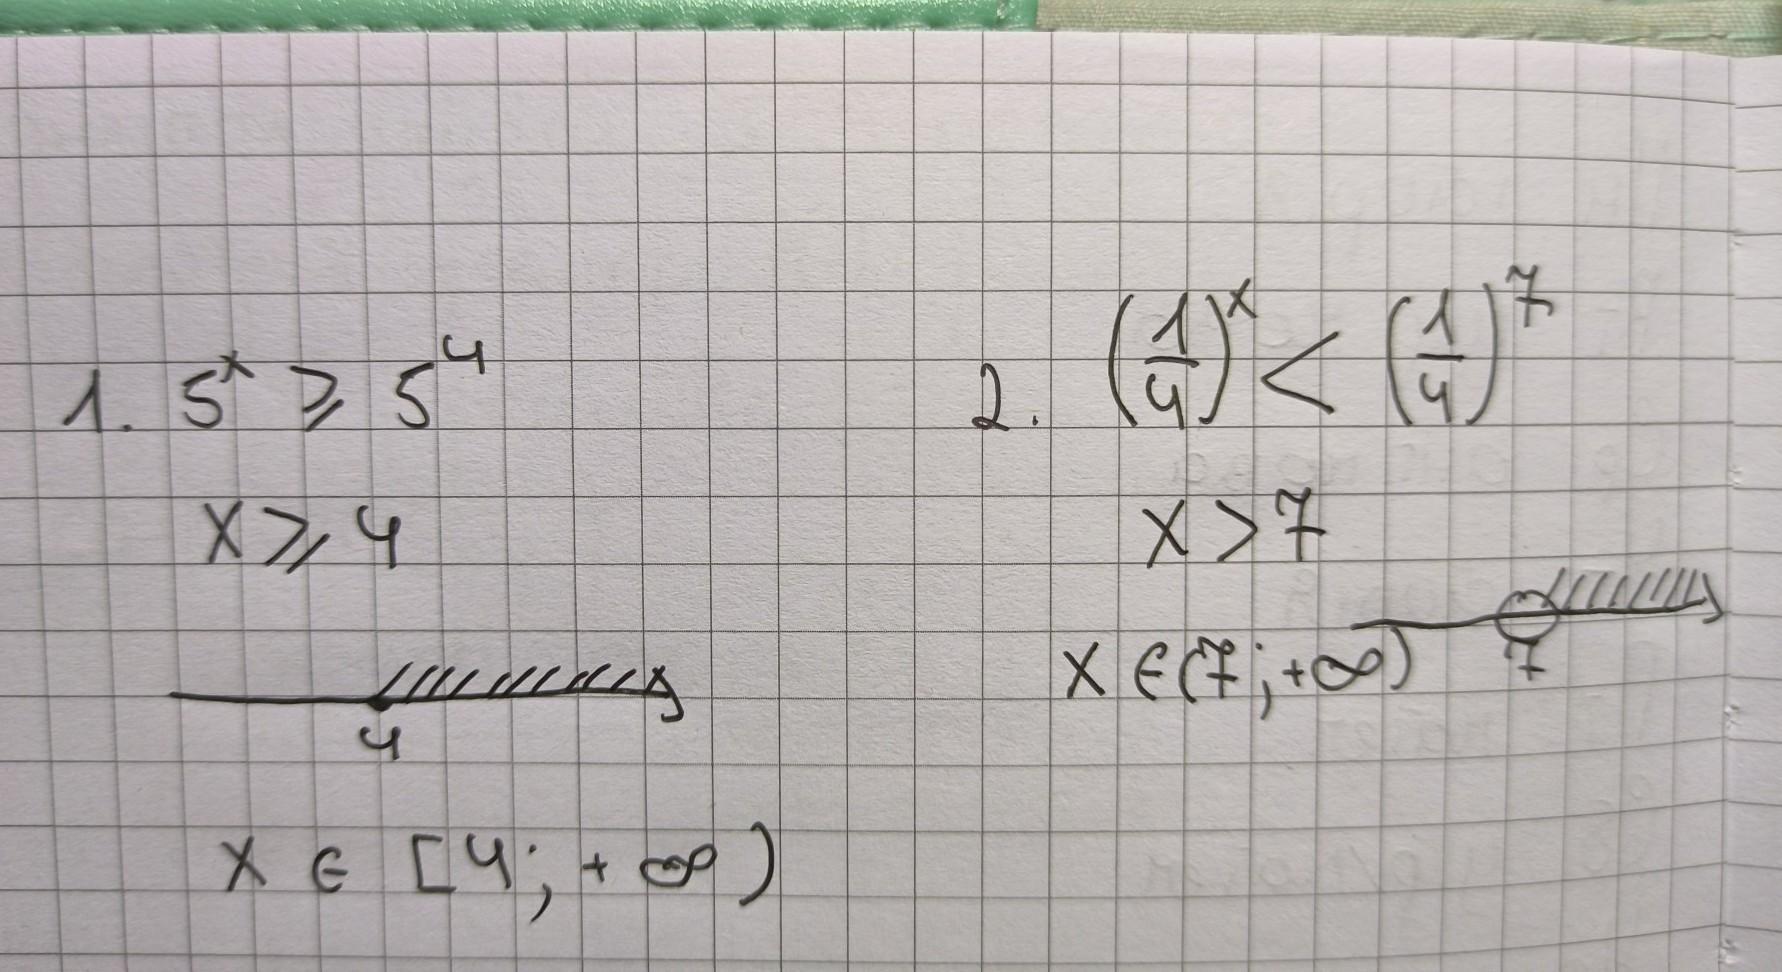 1. 5^x ⩾ 5^4
x ⩾ 4
4
x ∈ [4; +∞)
2. (1/4)^x < (1/4)^7
x > 7
7
x ∈ (7; +∞)